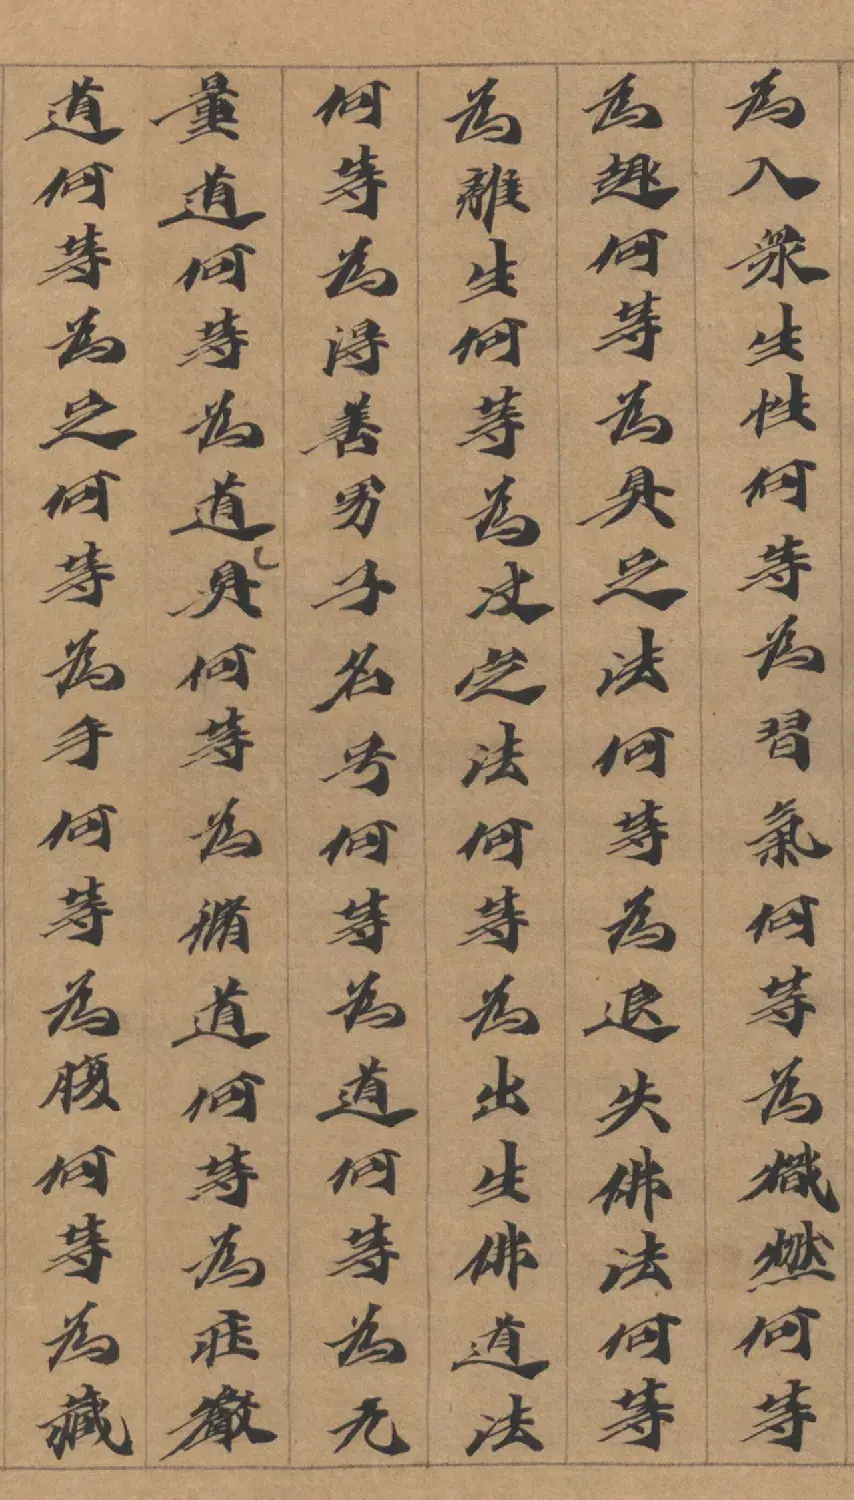 為入衆生性何等為習氣何等為熾燃何等
為趣何等為具足法何等為退失佛法何等
為離生何等為决定法何等為出生佛道法
何等為得善男子名号何等為道何等為无
量道何等為道具何等為脩道何等為莊嚴
道何等為足何等為手何等為腹何等為藏